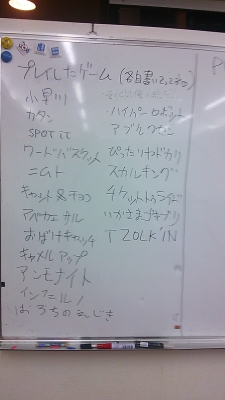 プレイしたゲーム (各自書いてってネ)
小早川
カタン
SPOT it
ワードバスケット
ニムト
キャット&チョコ
アバカエカル
おばけキャッチ
キャメルアップ
アンモナイト
インフェルノ
ハイパーロボット
ぴったりヤドカリ
スカルキング
チケットトゥライド
いかさまゴキブリ
TZOLK'IN